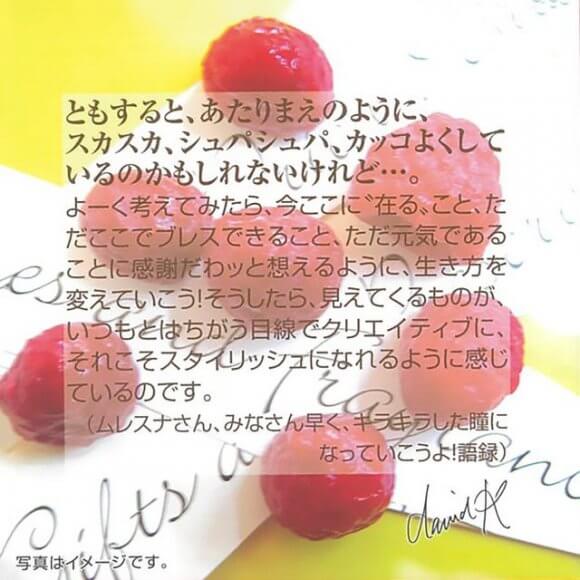 ともすると、あたりまえのように、
スカスカ、シュパシュパ、カッコよくして
いるのかもしれないけれど…。
よーく考えてみたら、今ここに〝在る〟こと、た
だここでブレスできること、ただ元気である
ことに感謝だわッと想えるように、生き方を
変えていこう!そうしたら、見えてくるものが、
いつもとはちがう目線でクリエイティブに、
それこそスタイリッシュになれるように感じ
ているのです。
(ムレスナさん、みなさん早く、キラキラした瞳に
なっていこうよ!語録)
david K
Gifts a
写真はイメージです。